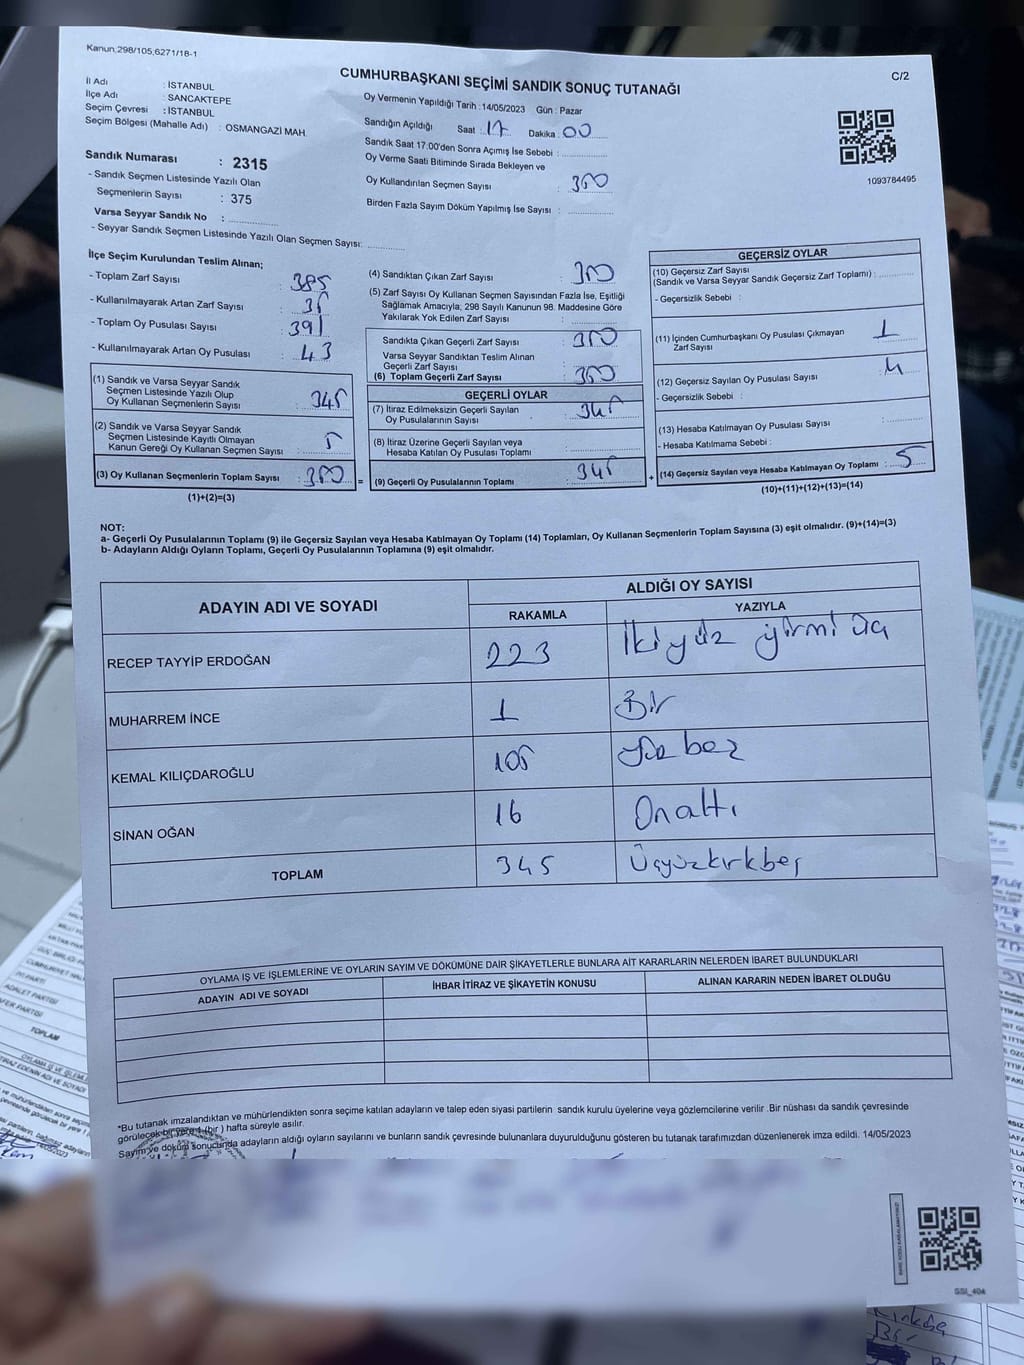 Kanun,298/105,6271/18-1
C/2
CUMHURBAŞKANI SEÇİMİ SANDIK SONUÇ TUTANAĞI
İl Adı : İSTANBUL
İlçe Adı : SANCAKTEPE
Seçim Çevresi : İSTANBUL
Seçim Bölgesi (Mahalle Adı) : OSMANGAZİ MAH.
Sandık Numarası : 2315
- Sandık Seçmen Listesinde Yazılı Olan
Seçmenlerin Sayısı : 375
Varsa Seyyar Sandık No :
- Seyyar Sandık Seçmen Listesinde Yazılı Olan Seçmen Sayısı:
Oy Vermenin Yapıldığı Tarih : 14/05/2023 Gün : Pazar
Sandığın Açıldığı Saat : 17 Dakika : 00
Sandık Saat 17:00'den Sonra Açımış İse Sebebi :
Oy Verme Saati Bitiminde Sırada Bekleyen ve
Oy Kullandırılan Seçmen Sayısı : 350
Birden Fazla Sayım Döküm Yapılmış İse Sayısı :
1093784495
İlçe Seçim Kurulundan Teslim Alınan;
- Toplam Zarf Sayısı : 385
- Kullanılmayarak Artan Zarf Sayısı : 35
- Toplam Oy Pusulası Sayısı : 391
- Kullanılmayarak Artan Oy Pusulası : 43
(1) Sandık ve Varsa Seyyar Sandık
Seçmen Listesinde Yazılı Olup
Oy Kullanan Seçmenlerin Sayısı : 345
(2) Sandık ve Varsa Seyyar Sandık
Seçmen Listesinde Kayıtlı Olmayan
Kanun Gereği Oy Kullanan Seçmen Sayısı : 5
(3) Oy Kullanan Seçmenlerin Toplam Sayısı : 350
(1)+(2)=(3)
=
(4) Sandıktan Çıkan Zarf Sayısı : 350
(5) Zarf Sayısı Oy Kullanan Seçmen Sayısından Fazla İse, Eşitliği
Sağlamak Amacıyla, 298 Sayılı Kanunun 98. Maddesine Göre
Yakılarak Yok Edilen Zarf Sayısı :
Sandıkta Çıkan Geçerli Zarf Sayısı : 350
Varsa Seyyar Sandıktan Teslim Alınan
Geçerli Zarf Sayısı :
(6) Toplam Geçerli Zarf Sayısı : 350
GEÇERLİ OYLAR
(7) İtiraz Edilmeksizin Geçerli Sayılan
Oy Pusulalarının Sayısı : 345
(8) İtiraz Üzerine Geçerli Sayılan veya
Hesaba Katılan Oy Pusulası Toplamı :
(9) Geçerli Oy Pusulalarının Toplamı : 345
+
GEÇERSİZ OYLAR
(10) Geçersiz Zarf Sayısı
(Sandık ve Varsa Seyyar Sandık Geçersiz Zarf Toplamı) :
- Geçersizlik Sebebi :
(11) İçinden Cumhurbaşkanı Oy Pusulası Çıkmayan
Zarf Sayısı : 1
(12) Geçersiz Sayılan Oy Pusulası Sayısı : 4
- Geçersizlik Sebebi :
(13) Hesaba Katılmayan Oy Pusulası Sayısı :
- Hesaba Katılmama Sebebi :
(14) Geçersiz Sayılan veya Hesaba Katılmayan Oy Toplamı : 5
(10)+(11)+(12)+(13)=(14)
NOT:
a- Geçerli Oy Pusulalarının Toplamı (9) ile Geçersiz Sayılan veya Hesaba Katılmayan Oy Toplamı (14) Toplamları, Oy Kullanan Seçmenlerin Toplam Sayısına (3) eşit olmalıdır. (9)+(14)=(3)
b- Adayların Aldığı Oyların Toplamı, Geçerli Oy Pusulalarının Toplamına (9) eşit olmalıdır.
ADAYIN ADI VE SOYADI
ALDIĞI OY SAYISI
RAKAMLA YAZIYLA
RECEP TAYYİP ERDOĞAN 223 İkiyüz yirmi üç
MUHARREM İNCE 1 Bir
KEMAL KILIÇDAROĞLU 105 Yüz beş
SİNAN OĞAN 16 Onaltı
TOPLAM 345 Üçyüzkırkbeş
OYLAMA İŞ VE İŞLEMLERİNE VE OYLARIN SAYIM VE DÖKÜMÜNE DAİR ŞİKAYETLERLE BUNLARA AİT KARARLARIN NELERDEN İBARET BULUNDUKLARI
ADAYIN ADI VE SOYADI İHBAR İTİRAZ VE ŞİKAYETİN KONUSU ALINAN KARARIN NEDEN İBARET OLDUĞU
*Bu tutanak imzalandıktan ve mühürlendikten sonra seçime katılan adayların ve talep eden siyasi partilerin sandık kurulu üyelerine veya gözlemcilerine verilir .Bir nüshası da sandık çevresinde
görülecek bir yere 1 (bir ) hafta süreyle asılır.
Sayım ve döküm sonucunda adayların aldığı oyların sayılarını ve bunların sandık çevresinde bulunanlara duyurulduğunu gösteren bu tutanak tarafımızdan düzenlenerek imza edildi. 14/05/2023
ADALET PARTİSİ
TOPLAM
Bir